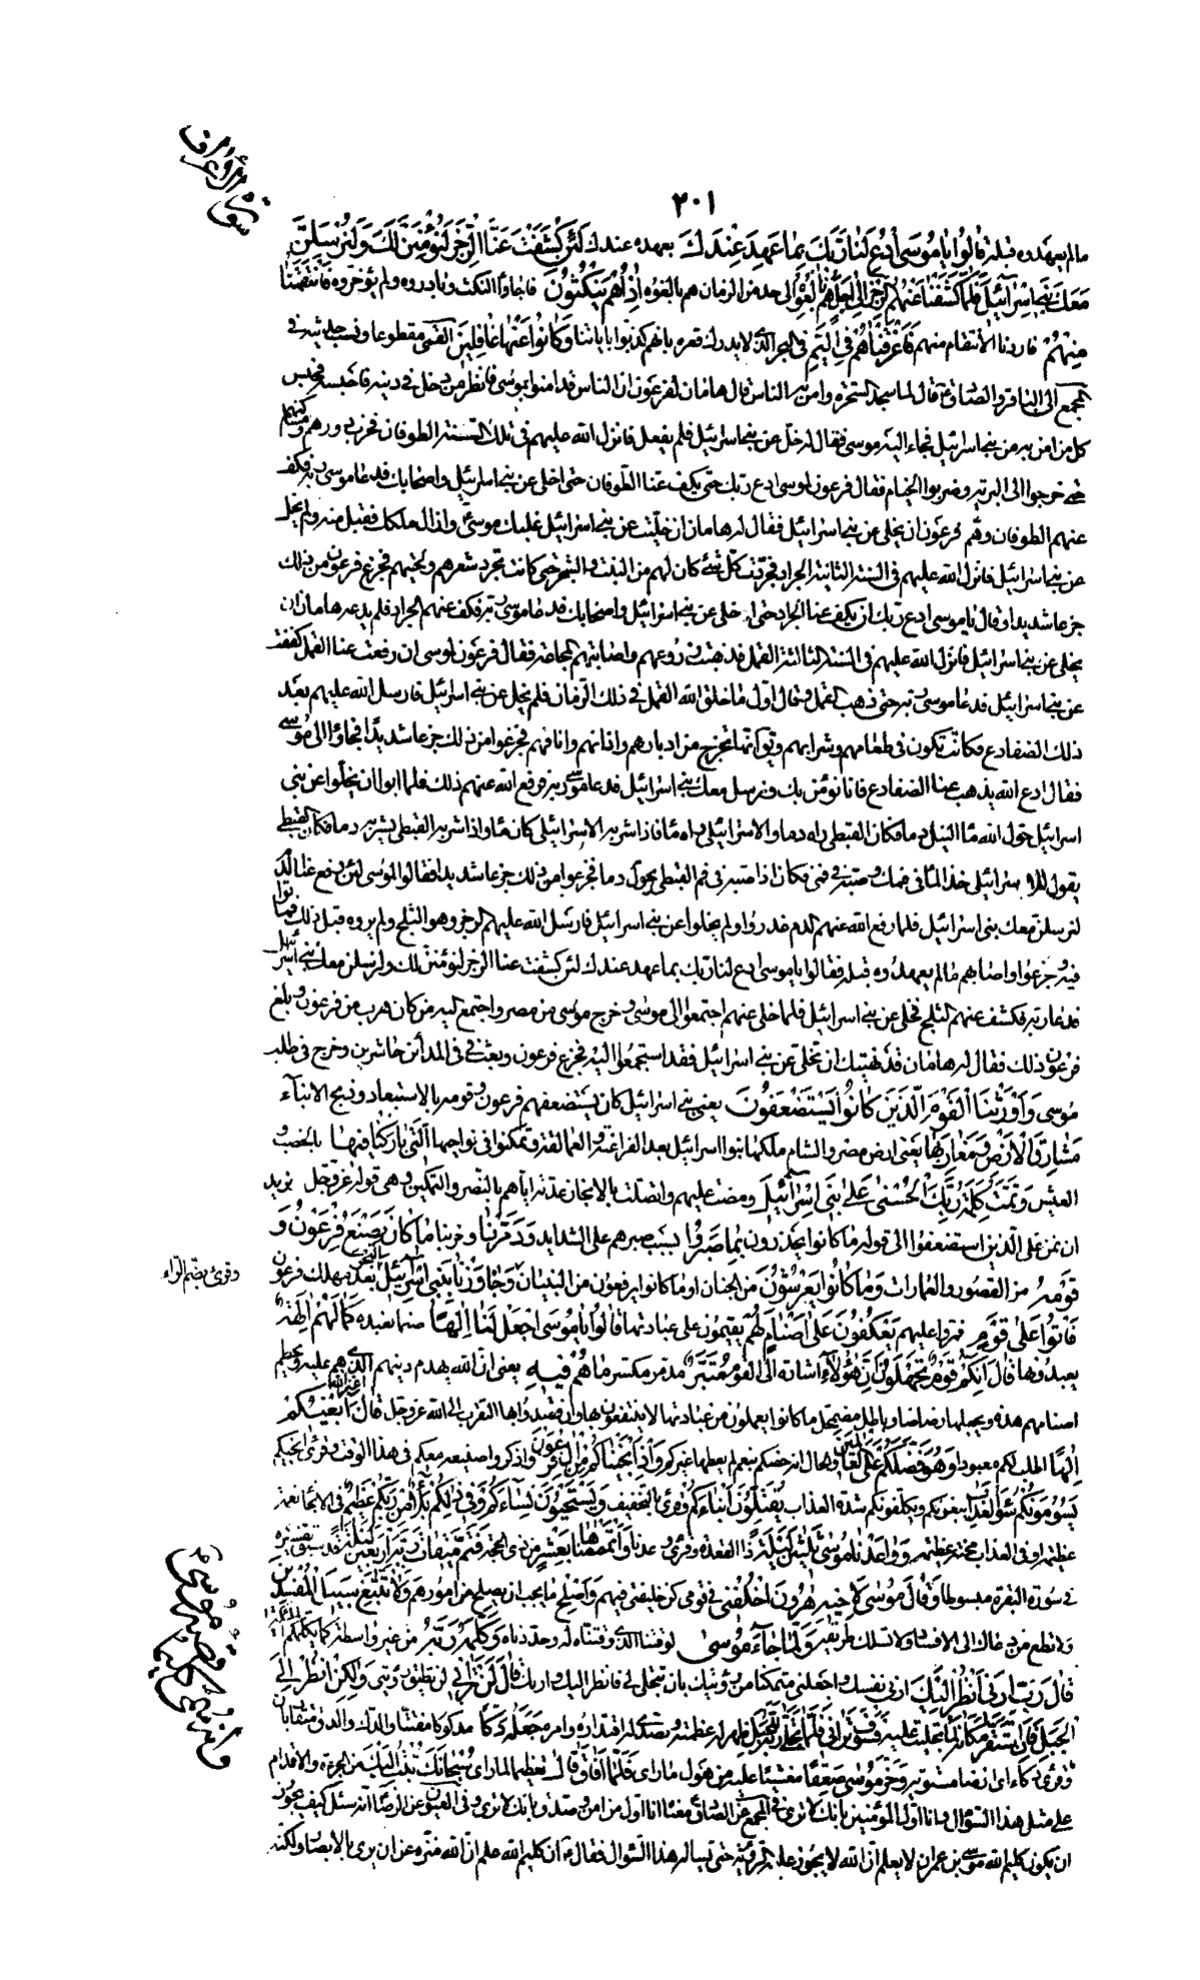 سورة الأعراف
٢٠١
ما لم يعهدوه قبله قالُوا يا مُوسَى ادْعُ لَنا رَبَّكَ بِما عَهِدَ عِنْدَكَ بعهده عندك لَئِنْ كَشَفْتَ عَنَّا الرِّجْزَ لَنُؤْمِنَنَّ لَكَ وَلَنُرْسِلَنَّ
مَعَكَ بَنِي إِسْرائِيلَ فَلَمَّا كَشَفْنا عَنْهُمُ الرِّجْزَ إِلى أَجَلٍ هُمْ بالِغُوهُ الى حد من الزمان هم بالغوه إِذا هُمْ يَنْكُثُونَ فاجاؤا النكث وبادروه ولم يؤخروه فَانْتَقَمْنا
مِنْهُمْ فاردنا الانتقام منهم فَأَغْرَقْناهُمْ فِي الْيَمِّ فى البحر الذى لا يدرك قعره بِأَنَّهُمْ كَذَّبُوا بِآياتِنا وَكانُوا عَنْها غافِلِينَ القمى مقطوعا ونسب حديثه فى
المجمع الى الباقر والصادق ع قال لما سجد السحرة وامن به الناس قال هامان لفرعون ان الناس قد امنوا بموسى فانظر من دخل فى دينه فاحبسه فحبس
كل من امن به من بنى اسرائيل فجاء اليه موسى فقال له خل عن بنى اسرائيل فلم يفعل فانزل الله عليهم فى تلك السنة الطوفان فخرب دورهم ومساكنهم
حتى خرجوا الى البرية وضربوا الخيام فقال فرعون لموسى ادع ربك حتى يكف عنا الطوفان حتى اخلى عن بنى اسرائيل واصحابك فدعا موسى ربه فكف
عنهم الطوفان وهم فرعون ان يخلى عن بنى اسرائيل فقال له هامان ان خليت عن بنى اسرائيل غلبك موسى وازال ملكك فقبل منه ولم يخل
عن بنى اسرائيل فانزل الله عليهم فى السنة الثانية الجراد فجردت كل شئ كان لهم من النبت والشجر حتى كانت تجرد شعرهم ولحيتهم فجزع فرعون من ذلك
جزعا شديدا وقال يا موسى ادع ربك ان يكف عنا الجراد حتى اخلى عن بنى اسرائيل واصحابك فدعا موسى ربه فكف عنهم الجراد فلم يدعه هامان ان
يخلى عن بنى اسرائيل فانزل الله عليهم فى السنة الثالثة القمل فذهبت زروعهم واصابتهم المجاعة فقال فرعون لموسى ان رفعت عنا القمل كففت
عن بنى اسرائيل فدعا موسى ربه حتى ذهب القمل وقال اول ما خلق الله القمل فى ذلك الزمان فلم يخل عن بنى اسرائيل فارسل الله عليهم بعد
ذلك الضفادع فكانت تكون فى طعامهم وشرابهم ويق انها تخرج من ادبارهم واذانهم وانافهم فجزعوا من ذلك جزعا شديدا فجاؤا الى موسى
فقال ادع الله يذهب عنا الضفادع فانا نؤمن بك ونرسل معك بنى اسرائيل فدعا موسى ربه فرفع الله عنهم ذلك فلما ابوا ان يخلوا عن بنى
اسرائيل حول الله ماء النيل دما فكان القبطى راه دما والاسرائيلى راه ماء فاذا شربه الاسرائيلى كان ماء واذا شربه القبطى يشربه دما فكان القبطى
يقول للاسرائيلى خذ الماء فى فمك وصبه فى فمى فكان اذا صبه فى فم القبطى يحول دما فجزعوا من ذلك جزعا شديدا فقالوا لموسى لئن رفع عنا الدم
لنرسلن معك بنى اسرائيل فلما رفع الله عنهم الدم غدروا ولم يخلوا عن بنى اسرائيل فارسل الله عليهم الرجز وهو الثلج ولم يروه قبل ذلك فماتوا
فيه وجزعوا واصابهم ما لم يعهدوه قبله فقالوا يا موسى ادع لنا ربك بما عهد عندك لئن كشفت عنا الرجز لنؤمنن لك ولنرسلن معك بنى اسرائيل
فدعا ربه فكشف عنهم الثلج فخلى عن بنى اسرائيل فلما خلى عنهم اجتمعوا الى موسى وخرج موسى من مصر واجتمع اليه من كان هرب من فرعون وبلغ
فرعون ذلك فقال له هامان قد نهيتك ان تخلى عن بنى اسرائيل فقد استجمعوا اليه فجزع فرعون وبعث فى المدائن حاشرين وخرج فى طلب
موسى وَأَوْرَثْنَا الْقَوْمَ الَّذِينَ كانُوا يُسْتَضْعَفُونَ يعنى بنى اسرائيل كان يستضعفهم فرعون وقومه بالاستعباد وذبح الابناء
مَشارِقَ الْأَرْضِ وَمَغارِبَهَا يعنى ارض مصر والشام ملكها بنوا اسرائيل بعد الفراعنة والعمالقة وتمكنوا فى نواحيها الَّتِي بارَكْنا فِيها بالخصب و
العيش وَتَمَّتْ كَلِمَةُ رَبِّكَ الْحُسْنى عَلى بَنِي إِسْرائِيلَ ومضت عليهم واتصلت بالانجاز عدته اياهم بالنصر والتمكين وهى قوله عز وجل نريد
ان نمن على الذين استضعفوا الى قوله ما كانوا يحذرون بِما صَبَرُوا بسبب صبرهم على الشدايد وَدَمَّرْنا وخربنا ما كانَ يَصْنَعُ فِرْعَوْنُ وَ
قَوْمُهُ من القصور والعمارات وَما كانُوا يَعْرِشُونَ من الجنان او ما كانوا يرفعون من البنيان وَجاوَزْنا بِبَنِي إِسْرائِيلَ الْبَحْرَ بعد مهلك فرعون
وقرئ بضم الراء
فَأَتَوْا عَلى قَوْمٍ فمروا عليهم يَعْكُفُونَ عَلى أَصْنامٍ لَهُمْ يقيمون على عبادتها قالُوا يا مُوسَى اجْعَلْ لَنا إِلهاً صنما نعبده كَما لَهُمْ آلِهَةٌ
يعبدونها قالَ إِنَّكُمْ قَوْمٌ تَجْهَلُونَ إِنَّ هؤُلاءِ اشارة الى القوم مُتَبَّرٌ مدمر مكسر ما هُمْ فِيهِ يعنى ان الله يهدم دينهم الذى هم عليه ويحطم
اصنامهم هذه ويجعلها رضاضا وباطل مضمحل ما كانوا يعملون من عبادتها لا ينتفعون بها وان قصدوا بها التقرب الى الله عز وجل قالَ أَغَيْرَ اللَّهِ أَبْغِيكُمْ
إِلهاً اطلب لكم معبودا وَهُوَ فَضَّلَكُمْ عَلَى الْعالَمِينَ والحال انه خصكم بنعم لم يعطها غيركم وَإِذْ أَنْجَيْناكُمْ مِنْ آلِ فِرْعَوْنَ واذكروا صنيعه معكم فى هذا الوقت وقرئ انجيكم
يَسُومُونَكُمْ سُوءَ الْعَذابِ يبغونكم ويكلفونكم شدة العذاب يُقَتِّلُونَ أَبْناءَكُمْ وقرئ بالتخفيف وَيَسْتَحْيُونَ نِساءَكُمْ وَفِي ذلِكُمْ بَلاءٌ مِنْ رَبِّكُمْ عَظِيمٌ فى الانجاء نعمة
عظيمة او فى العذاب محنة عظيمة وَواعَدْنا مُوسى ثَلاثِينَ لَيْلَةً ذا القعدة وقرئ وعدنا وَأَتْمَمْناها بِعَشْرٍ من ذى الحجة فَتَمَّ مِيقاتُ رَبِّهِ أَرْبَعِينَ لَيْلَةً قد سبق تفسيره
فى سورة البقرة مبسوطا وَقالَ مُوسى لِأَخِيهِ هارُونَ اخْلُفْنِي فِي قَوْمِي كن خليفتى فيهم وَأَصْلِحْ ما يجب ان يصلح من امورهم وَلا تَتَّبِعْ سَبِيلَ الْمُفْسِدِينَ
ولا تطع من دعاك الى الافساد ولا تسلك طريقه وَلَمَّا جاءَ مُوسى لِمِيقاتِنا لوقتنا الذى وقتناه له وحددناه وَكَلَّمَهُ رَبُّهُ من غير واسطة كما يكلم الملائكة
قالَ رَبِّ أَرِنِي أَنْظُرْ إِلَيْكَ ارنى نفسك واجعلنى متمكنا من رؤيتك بان تتجلى لى فانظر اليك واريك قالَ لَنْ تَرانِي لن تطيق رؤيتى وَلكِنِ انْظُرْ إِلَى
الْجَبَلِ فَإِنِ اسْتَقَرَّ مَكانَهُ لما تجليت عليه فَسَوْفَ تَرانِي فَلَمَّا تَجَلَّى رَبُّهُ لِلْجَبَلِ ظهر له عظمته وتصدى له اقتداره وامره جَعَلَهُ دَكًّا مدكوكا مفتتا والدك والدق متقاربان
وقرئ دكاء اى ارضا مستوية وَخَرَّ مُوسى صَعِقاً مغشيا عليه من هول ما راى فَلَمَّا أَفاقَ قالَ تعظيما لما راى سُبْحانَكَ تُبْتُ إِلَيْكَ من الجرءة والاقدام
على مثل هذا السؤال وانا اول المؤمنين بانك لا ترى فى المجمع عن الصادق ع معناه انا اول من امن وصدق بانك لا ترى وفى العيون عن الرضا ع انه سئل كيف يجوز
ان يكون كليم الله موسى بن عمران لا يعلم ان الله لا يجوز عليه الرؤية حتى يساله هذا السؤال فقال ع ان كليم الله علم ان الله منزه عن ان يرى بالابصار ولكنه